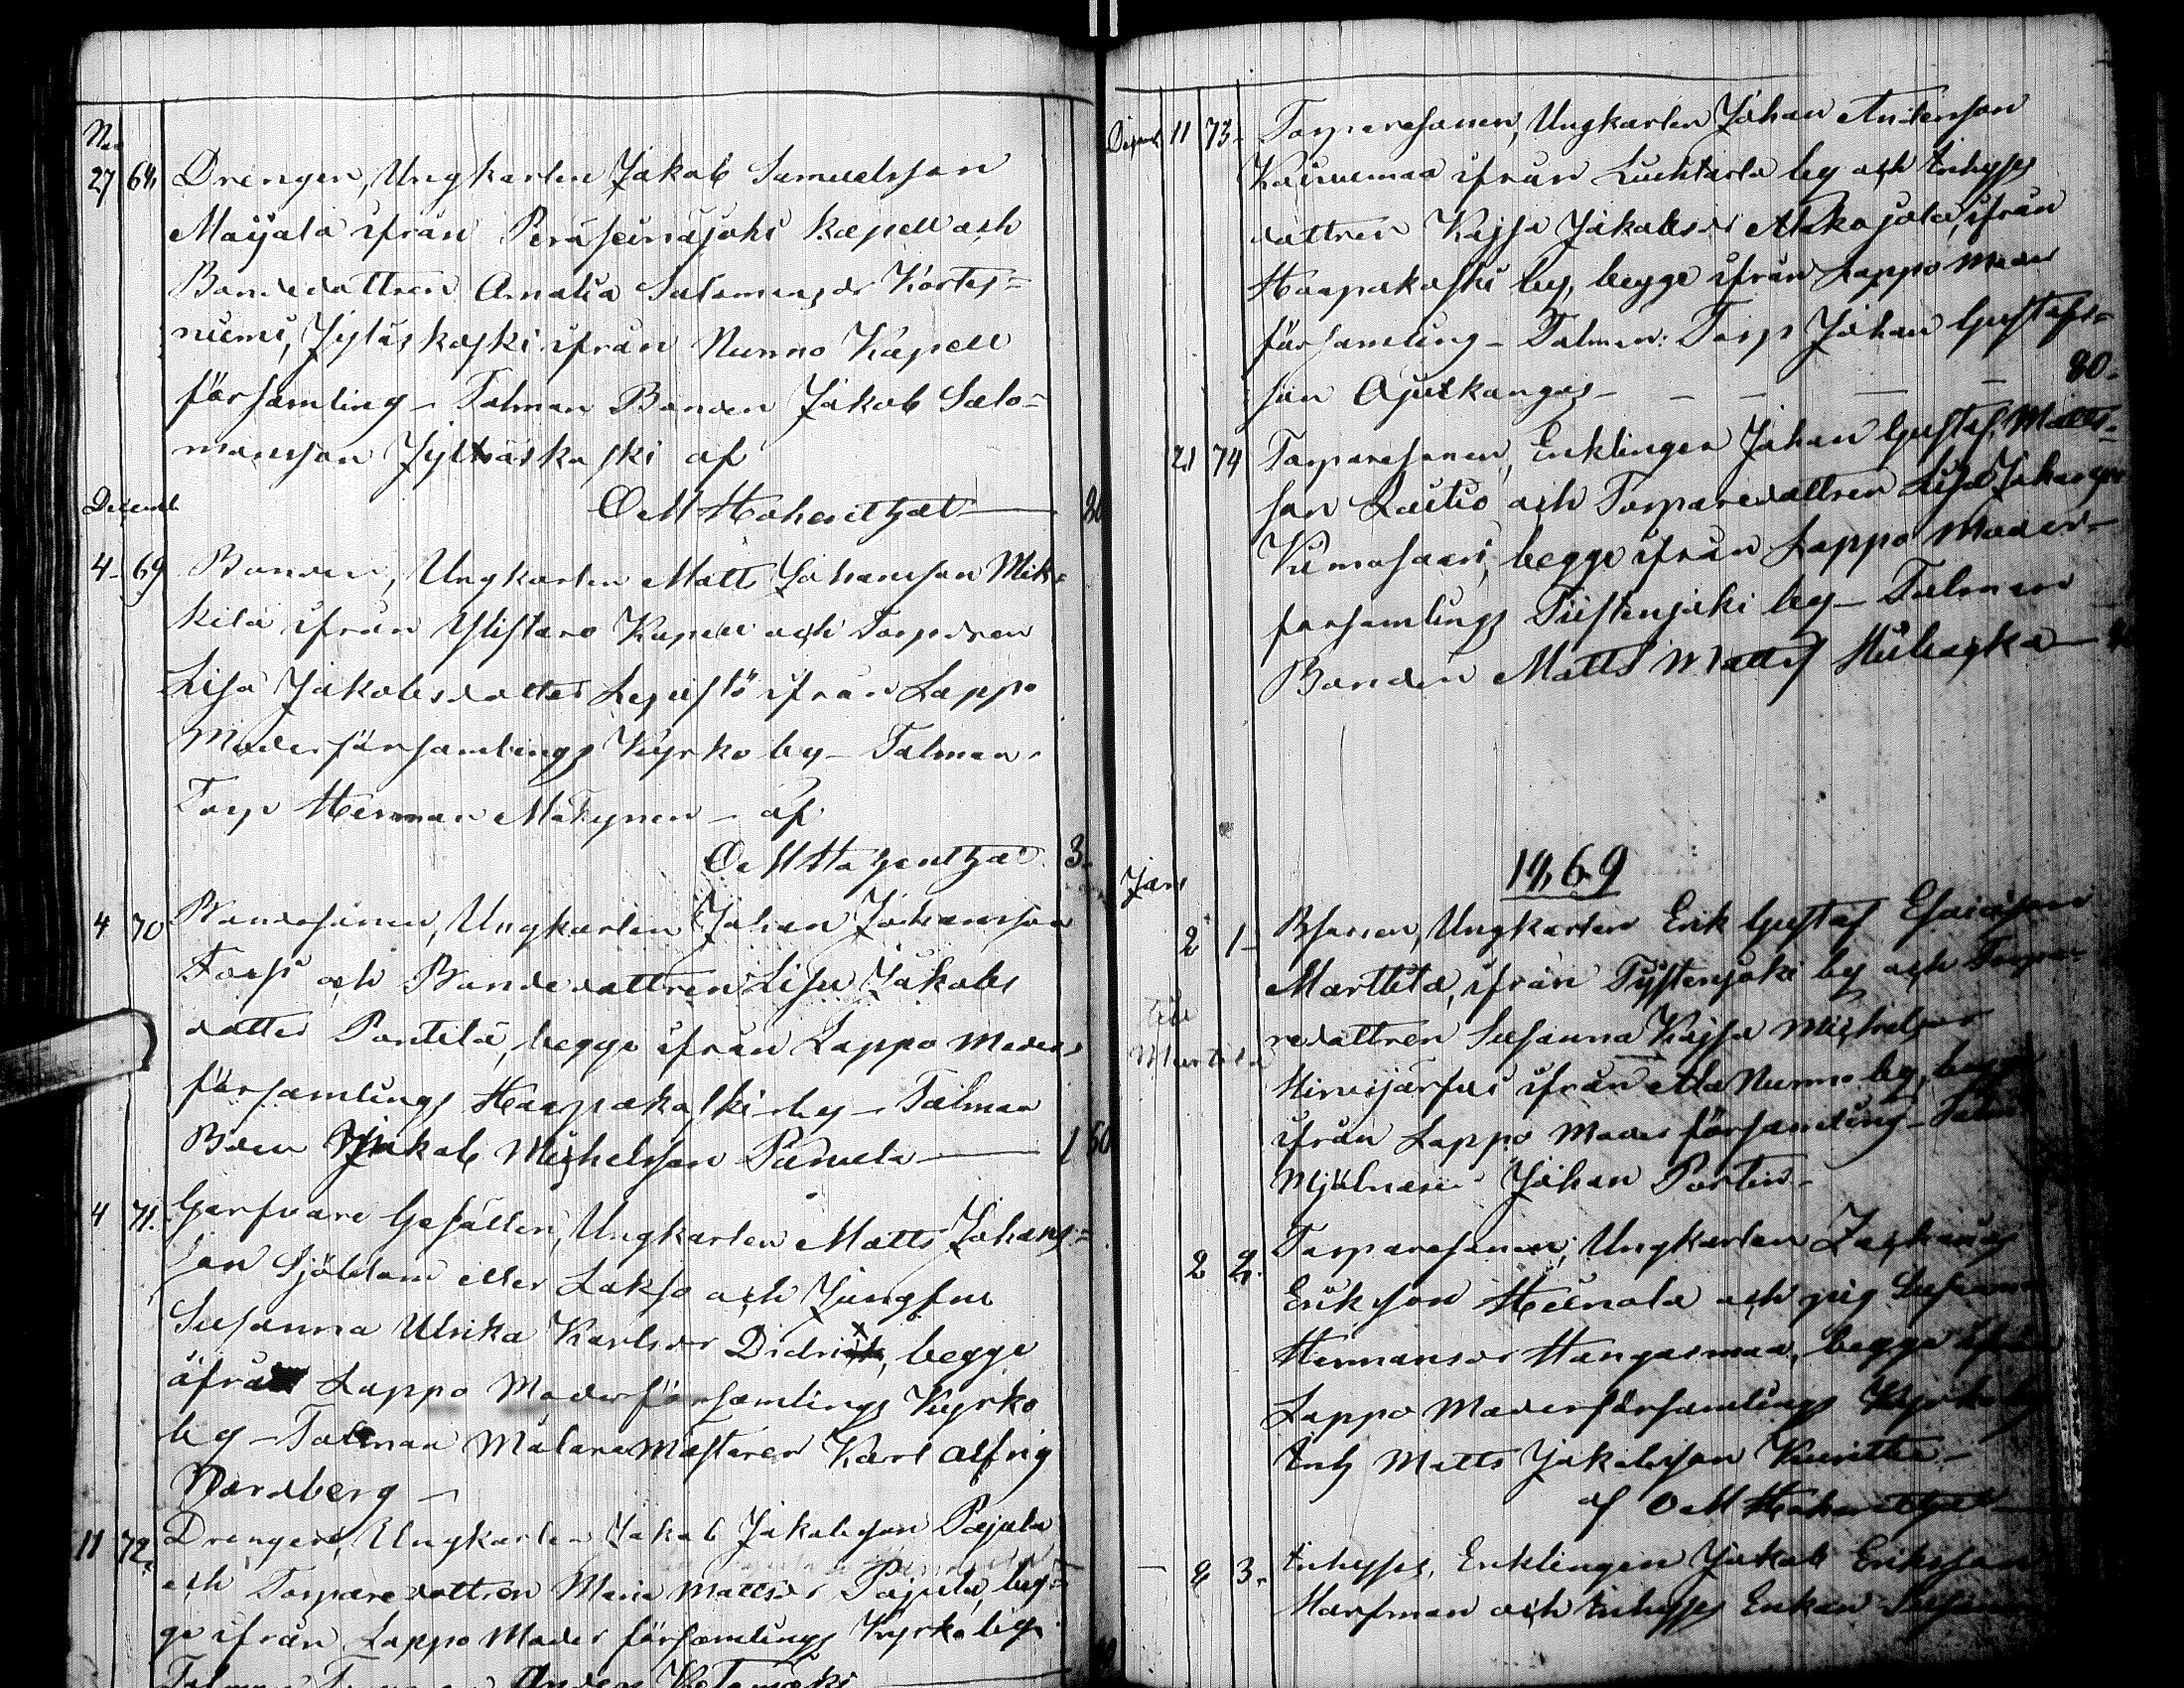 Nov
27 68 Drengen, Ungkarlen Jakob Samuelsson
Maijala ifrån Peräseinäjoki kapell och
Bondedottren Amalia Salomonsdr Kortes=
niemi, Jyläskoski ifrån Nurmo Kapell
församling - Talman Bonden Jakob Salo=
monsson Jyläskoski af
Decemb
O M Hohenthal
4 69 Bonden, Ungkarlen Matts Johansson Mik=
kila ifrån Ylistaro Kapell och Torpdren
Lisa Jakobsdotter Lepistö ifrån Lappo
Moderförsamlings Kyrko by - Talman
Torp Herman Mäkynen - af
O M Hohenthal 3-
4 70 Bondesonen, Ungkarlen Johan Johansson
och Bondedottren Lisa Jakobs
dotter Pontila, begge ifrån Lappo Moder
församlings Haapakoski by - Talman
Bden Jakob Michelsson 1 60
4 71. Garfvare Gesällen, Ungkarlen Matts Johans=
son Sjöblom eller Lakso och Jungfru
Susanna Ulrika Karlsdr begge
ifrån Lappo Moderförsamlings Kyrko
by - Talman Målaremästaren Karl
Nordberg -
11 72. Drengen, Ungkarlen Jakob Jakobsson Pajula
och Torparedottren Maria Mattsdr Pajula, beg=
ge ifrån Lappo Moder församlings Kyrko by.
Talman Anders Ketomäki
Decemb 11 73- Torparesonen, Ungkarlen Johan Andersson
ifrån Luhtala by och Inhyses
dottren Kajsa Jakobsdr Alakojola, ifrån
Haapakoski by, begge ifrån Lappo Moder
församling - Talman: Torp Johan Gustafs=
son - - - - 80-
21 74 Torparesonen, Enklingen Johan Gustaf Matts=
son Rautio och Torparedottren Lisa Johansdr
Kimosaari, begge ifrån Lappo Moder-
församlings Tiistenjoki by - Talman
Bonden Matts Matts
1869
Jan
2 1- Bsonen, Ungkarlen Erik Gustaf Esaiasson
Marttila, ifrån Tiistenjoki by och Torpa=
redottren Susanna Kajsa Michelsdr
Hirvijärfvi ifrån Ala Nurmo by, begge
ifrån Lappo Moder församling - Talm
Mjölnaren Johan Portin-
till
Martila
2 2. Torparesonen, Ungkarlen Zachris
Eriksson Heinola och pig Susanna
Hermansdr Hangasmaa, begge ifrån
Lappo Moderförsamlings Kyrko by
Inh Matts Jakobsson
af O M Hohenthal
- 2 3- Inhyses, Enklingen Jakob Eriksson
och Inhyses Enkan